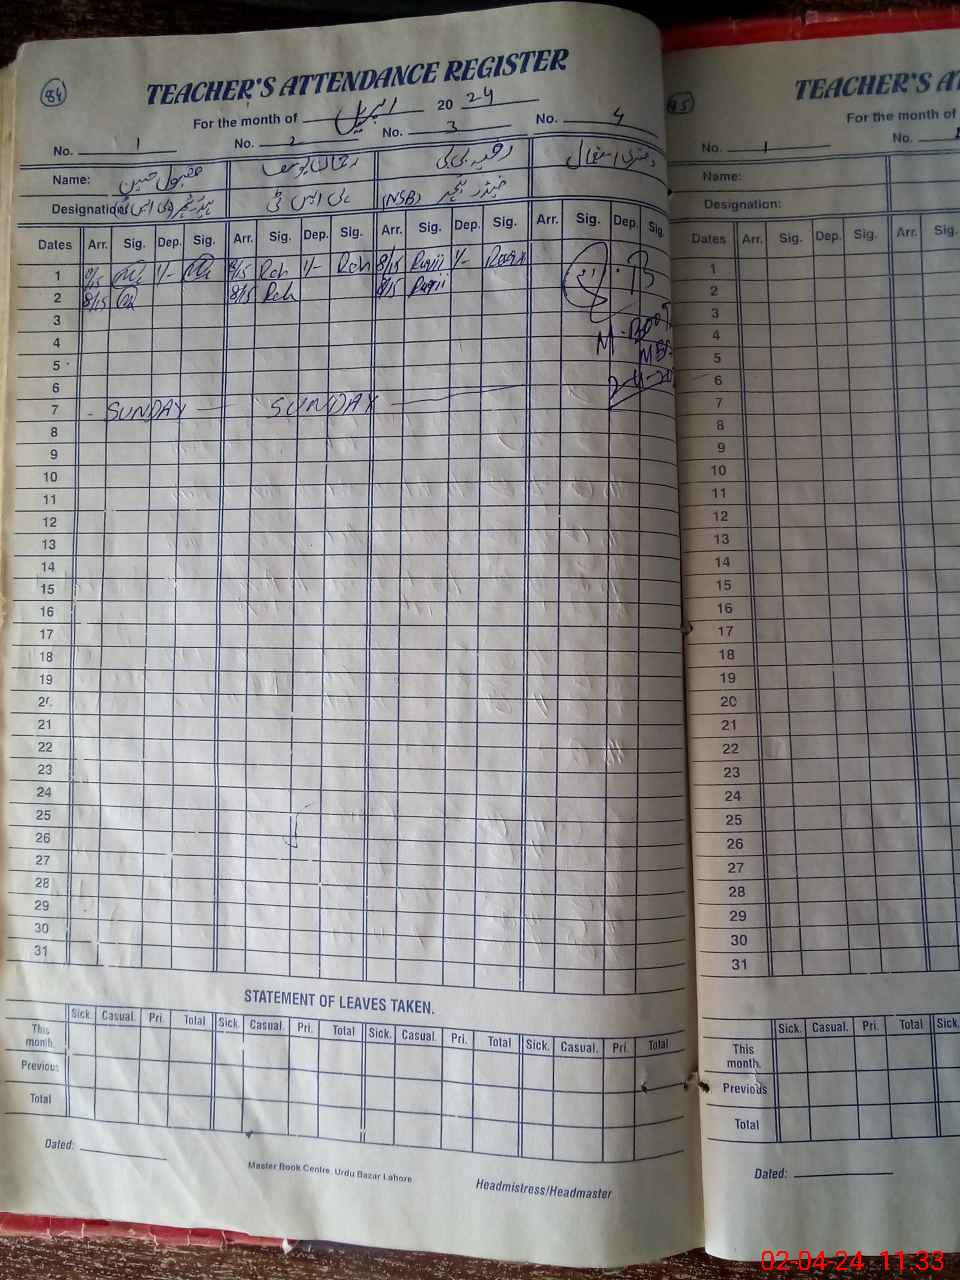 84
TEACHER'S ATTENDANCE REGISTER
For the month of اپریل 20 24
No. 1 No. 2 No. 3 No. 4
Name: مقبول حسین ریحانہ یوسف رقیہ بی بی
Designation: پی ایس ٹی (NSB) ٹیچر
Dates Arr. Sig. Dep. Sig. Arr. Sig. Dep. Sig. Arr. Sig. Dep. Sig. Arr. Sig. Dep. Sig.
1 8/15 1/- 8/15 Reh 1/- Reh 8/15 1/-
2 8/15 8/15 Reh 8/15
3
4
5
6
7 SUNDAY SUNDAY
8
9
10
11
12
13
14
15
16
17
18
19
20
21
22
23
24
25
26
27
28
29
30
31
STATEMENT OF LEAVES TAKEN.
Sick. Casual. Pri. Total Sick. Casual. Pri. Total Sick. Casual. Pri. Total Sick. Casual. Pri. Total
This month.
Previous
Total
Dated:
Master Book Centre. Urdu Bazar Lahore
Headmistress/Headmaster
TEACHER'S AT
For the month of
No. 1 No.
Name:
Designation:
Dates Arr. Sig. Dep. Sig. Arr. Sig.
1
2
3
4
5
6
7
8
9
10
11
12
13
14
15
16
17
18
19
20
21
22
23
24
25
26
27
28
29
30
31
Sick. Casual. Pri. Total Sick.
This month.
Previous
Total
Dated:
02-04-24 11:33